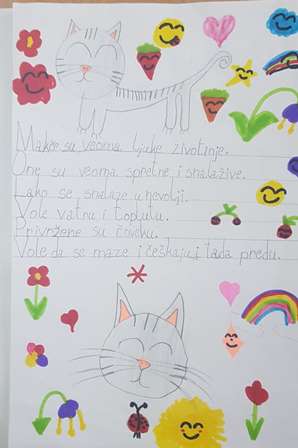 Mačke su veoma ljupke životinje.
One su veoma spretne, i snalažive.
Lako se snalaze u nevolji.
Vole vatru i toplutu.
Privržene su čoveku.
Vole da se maze i češkaju, i tada predu.